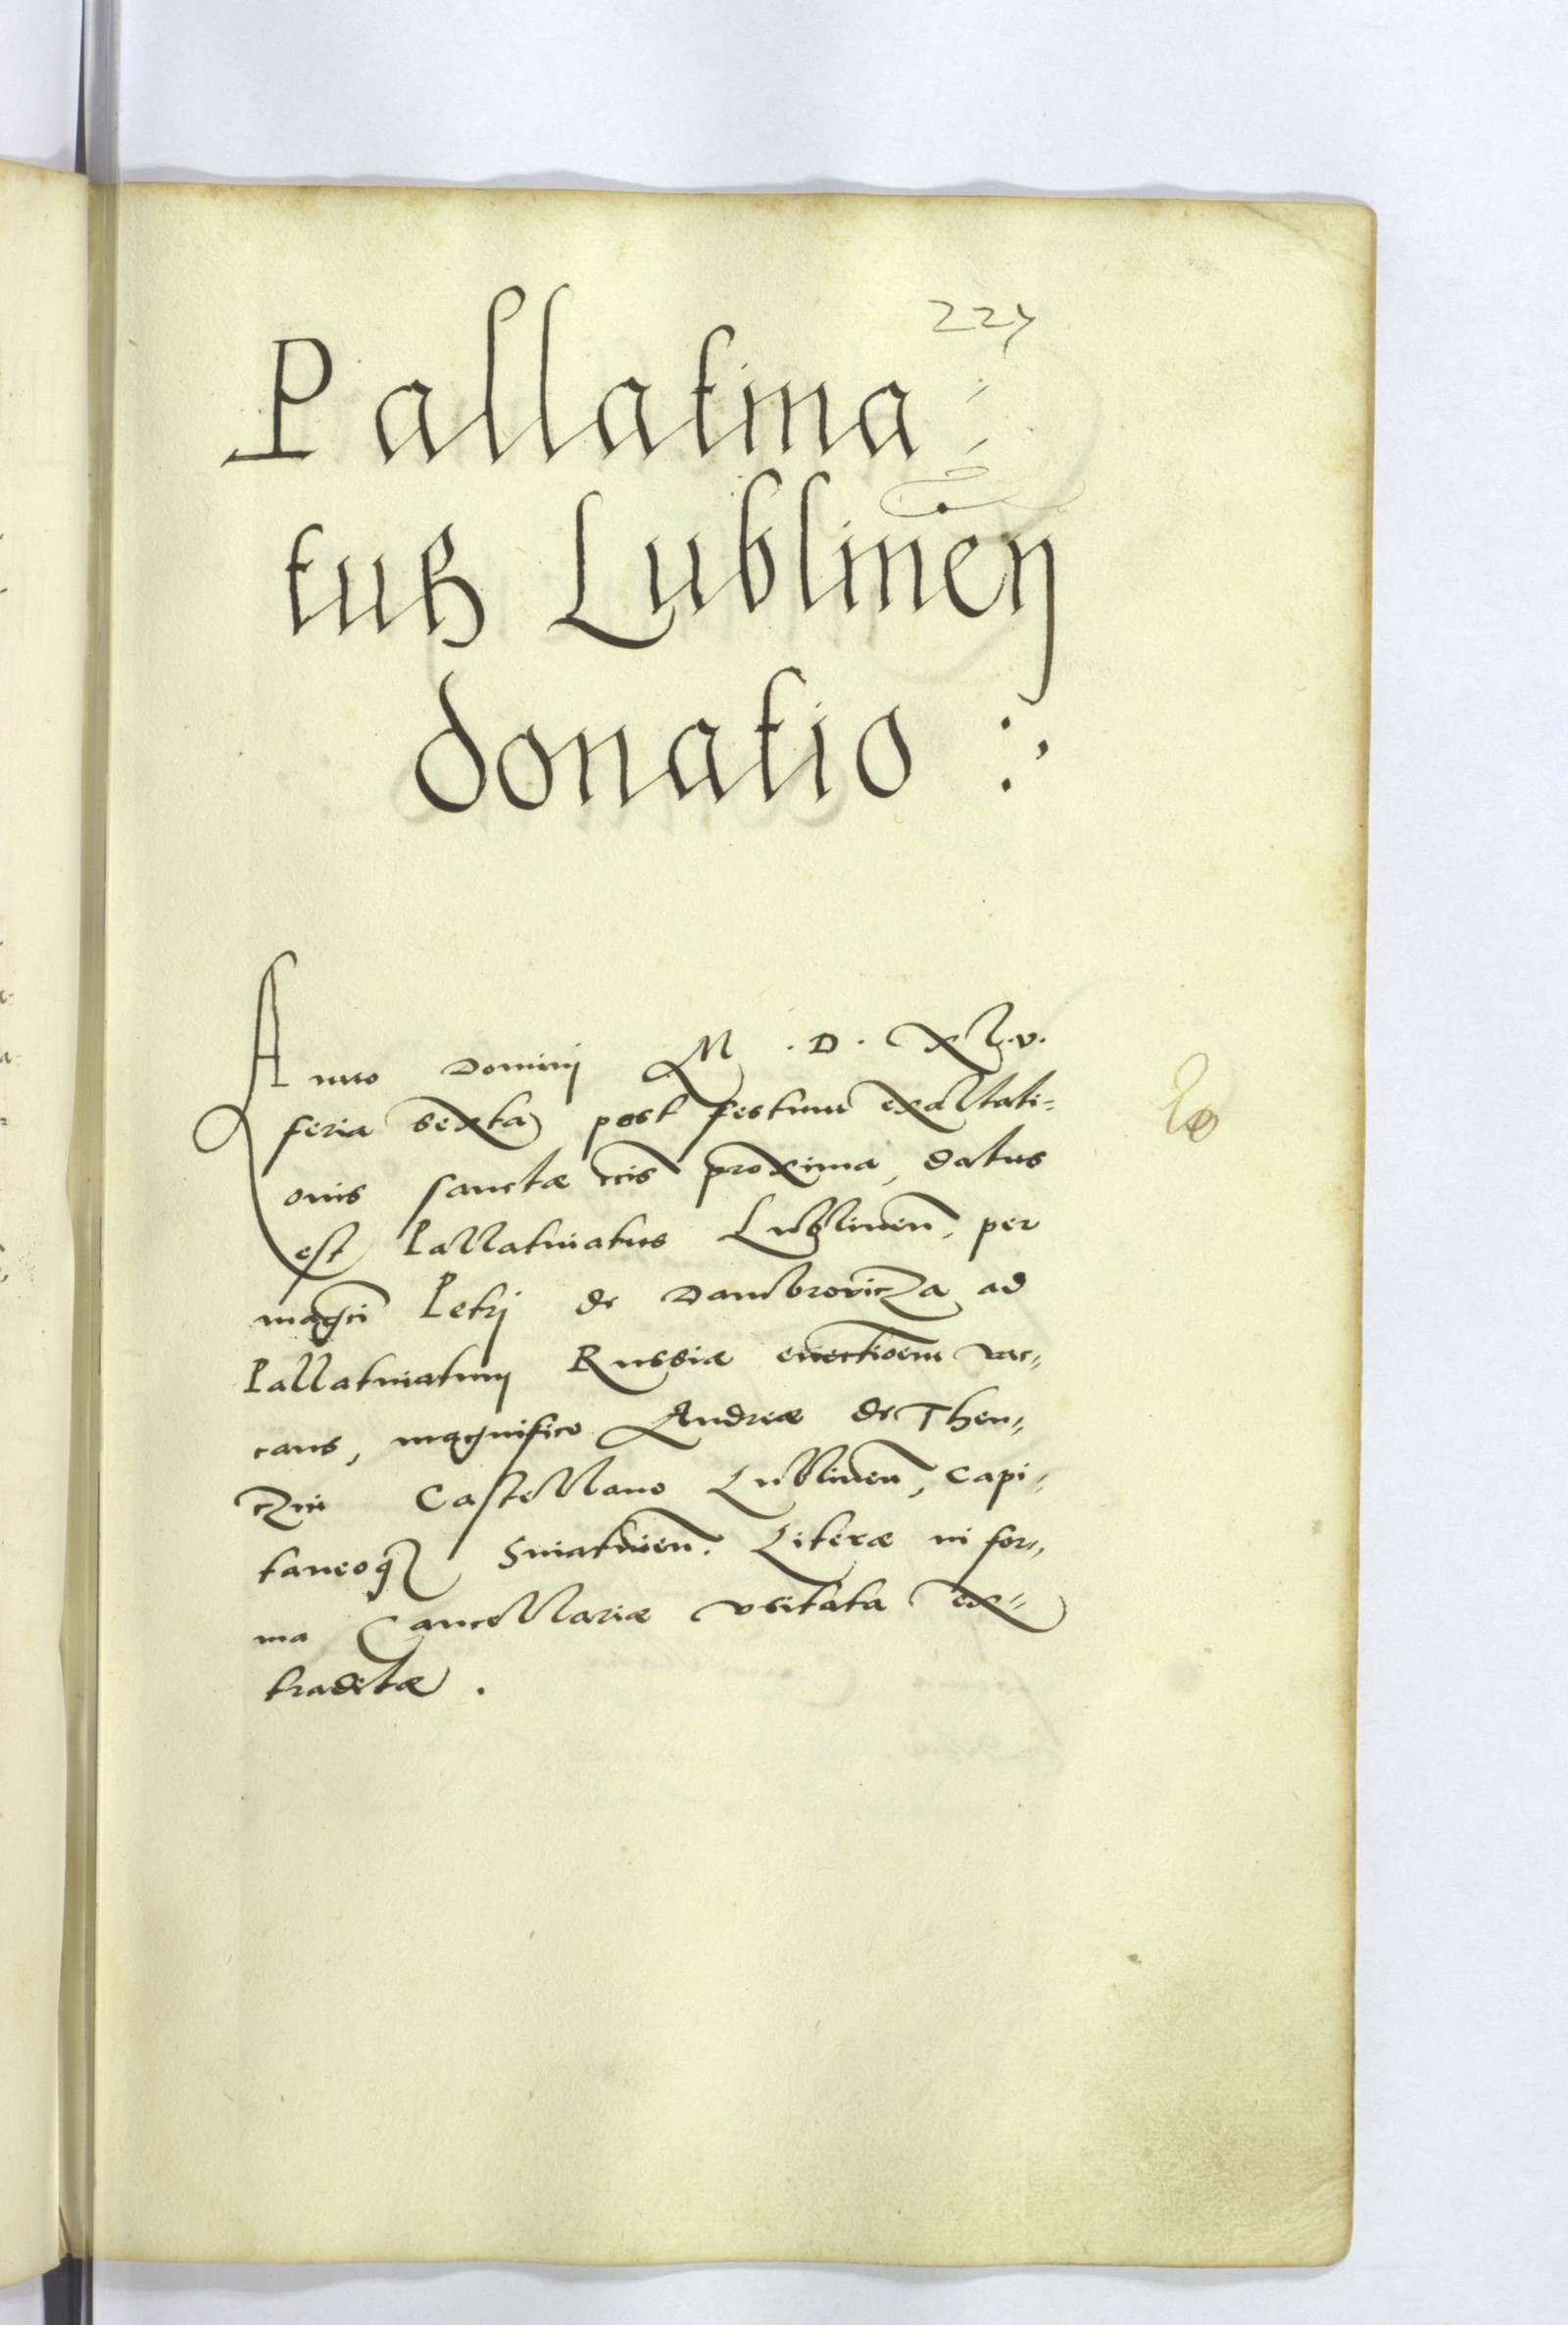 227
Pallatina=
tuß Lublinen̄
donatio :
Anno Domini M . D . XL.v.
feria sexta post festum exaltati=
onis sanctæ crucis proxima, datus
est Pallatinatus Lublinen̄, per
magci Petrj de Dambrovicza ad
Pallatinatum Russiæ euectioem vac=
cans, magnifico Andreæ de Then=
czin Castellano Lublinen̄, capi=
taneoq̃ Sniatinen̄. Literæ in for=
ma Cancellariæ vsitata ex=
traditæ .